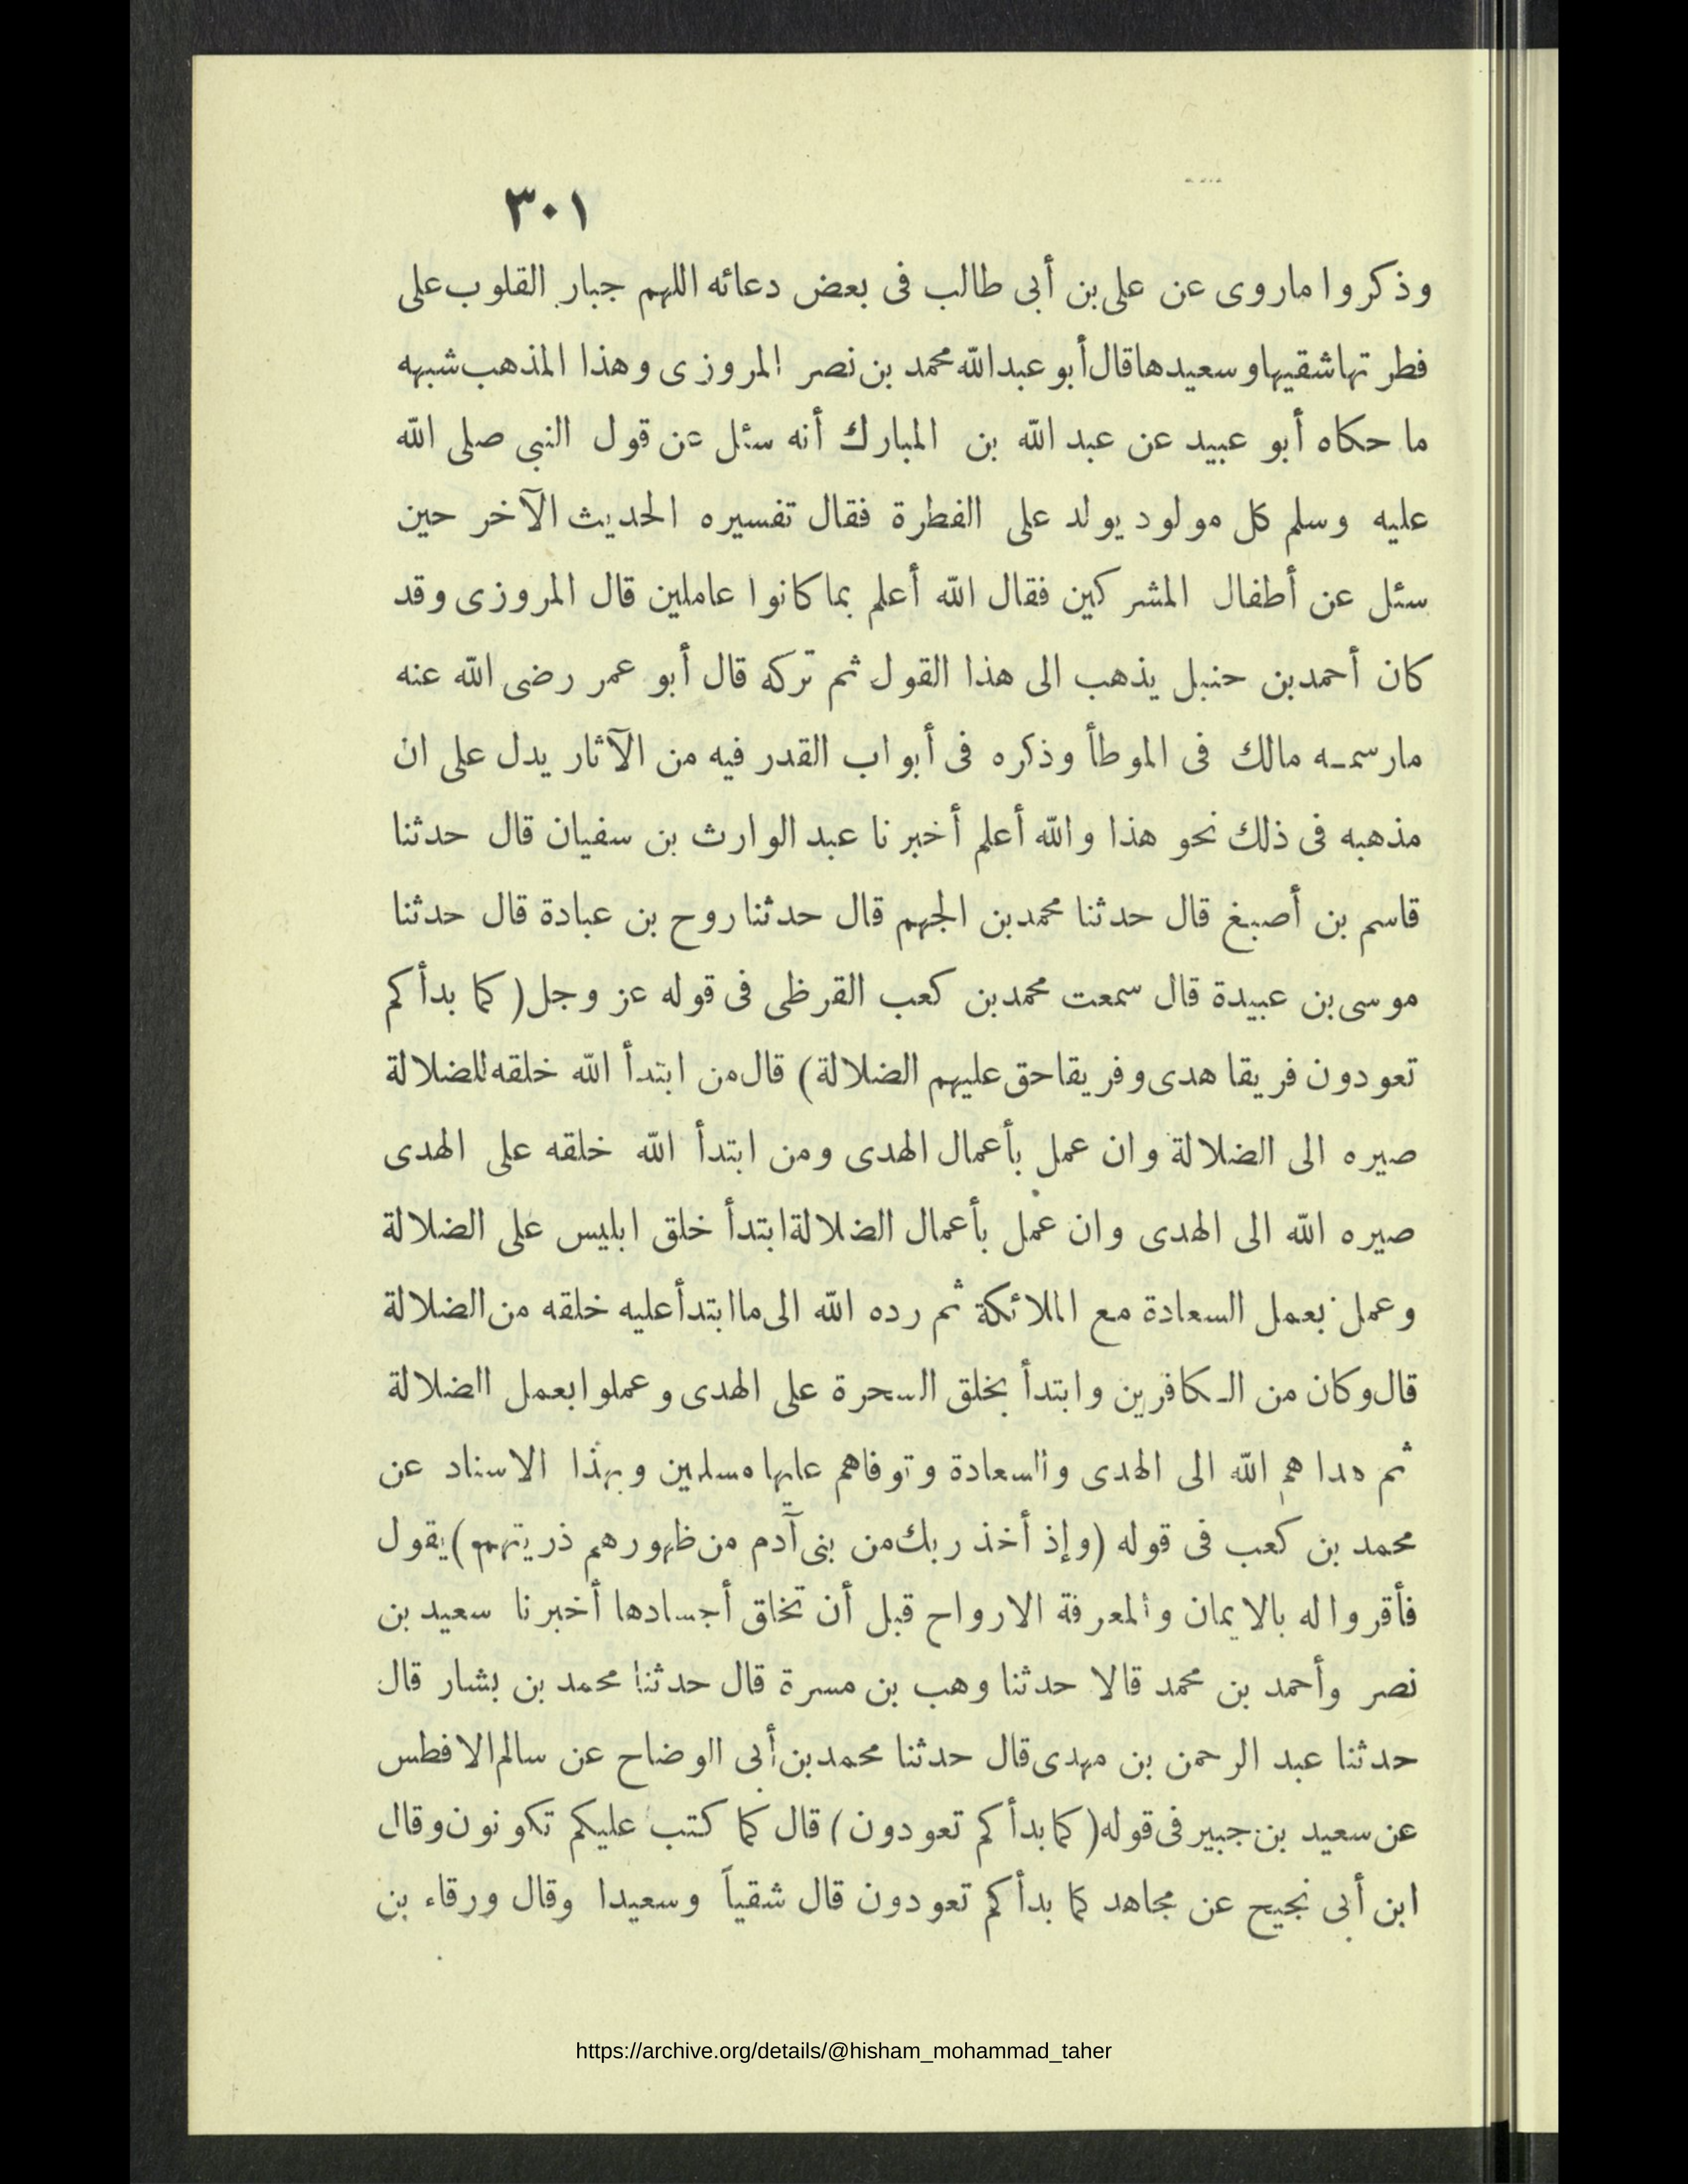 ٣٠١
وذكروا ماروى عن على بن أبى طالب فى بعض دعائه اللهم جبار القلوب على
فطرتها شقيها وسعيدها قال أبو عبد الله محمد بن نصر المروزى وهذا المذهب شبيه
ما حكاه أبو عبيد عن عبد الله بن المبارك أنه سئل عن قول النبى صلى الله
عليه وسلم كل مولود يولد على الفطرة فقال تفسيره الحديث الآخر حين
سئل عن أطفال المشركين فقال الله أعلم بما كانوا عاملين قال المروزى وقد
كان أحمد بن حنبل يذهب الى هذا القول ثم تركه قال أبو عمر رضى الله عنه
مارسمـه مالك فى الموطأ وذكره فى أبواب القدر فيه من الآثار يدل على ان
مذهبه فى ذلك نحو هذا والله أعلم أخبرنا عبد الوارث بن سفيان قال حدثنا
قاسم بن أصبغ قال حدثنا محمد بن الجهم قال حدثنا روح بن عبادة قال حدثنا
موسى بن عبيدة قال سمعت محمد بن كعب القرظى فى قوله عز وجل ( كما بدأكم
تعودون فريقا هدى وفريقا حق عليهم الضلالة ) قال من ابتدأ الله خلقه للضلالة
صيره الى الضلالة وان عمل بأعمال الهدى ومن ابتدأ الله خلقه على الهدى
صيره الله الى الهدى وان عمل بأعمال الضلالة ابتدأ خلق ابليس على الضلالة
وعمل بعمل السعادة مع الملائكة ثم رده الله الى ما ابتدأ عليه خلقه من الضلالة
قال وكان من الـكافرين وابتدأ بخلق السحرة على الهدى وعملوا بعمل الضلالة
ثم هداهم الله الى الهدى والسعادة وتوفاهم عليها مسلمين وبهذا الاسناد عن
محمد بن كعب فى قوله (وإذ أخذ ربك من بنى آدم من ظهورهم ذريتهم ) يقول
فأقروا له بالايمان والمعرفة الارواح قبل أن تخلق أجسادها أخبرنا سعيد بن
نصر وأحمد بن محمد قالا حدثنا وهب بن مسرة قال حدثنا محمد بن بشار قال
حدثنا عبد الرحمن بن مهدى قال حدثنا محمد بن أبى الوضاح عن سالم الافطس
عن سعيد بن جبير فى قوله ( كما بدأكم تعودون ) قال كما كتب عليكم تكونون وقال
ابن أبى نجيح عن مجاهد كما بدأكم تعودون قال شقياً وسعيدا وقال ورقاء بن
https://archive.org/details/@hisham_mohammad_taher